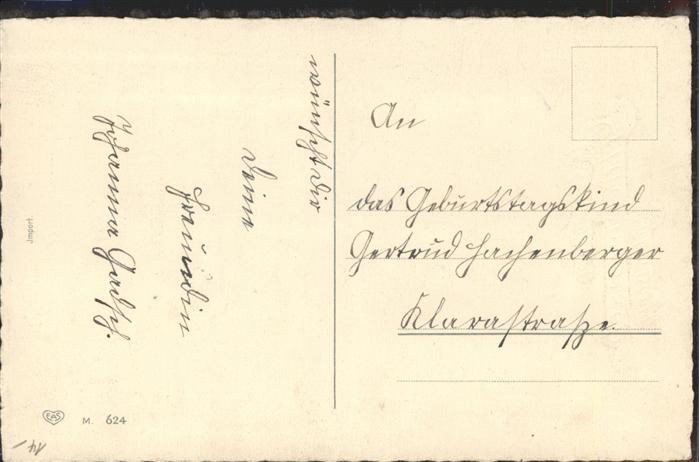 wünscht Dir
Deine
Freundin
Johanna
An
das Geburtstagskind
Gertrud Hachenberger
Klarastraße.
Import
EAS
M. 624
14,-